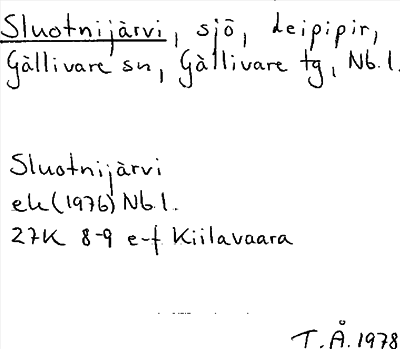 Sluotnijärvi, sjö, deipipir,
Gällivare sn, Gällivare tg, Nb.l.
Sluotnijärvi
ek (1976) Nb.l.
27K 8-9 e-f Kiilavaara
T.Å. 1978